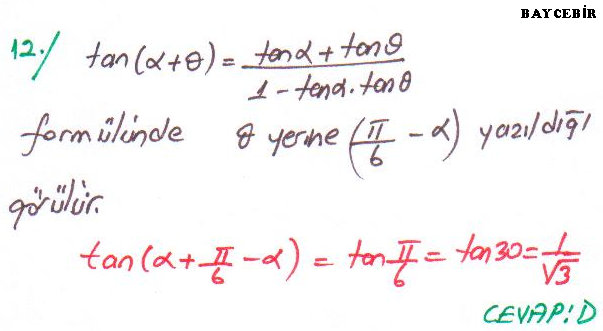 BAYCEBİR
12./ tan(α+θ) = (tanα + tanθ) / (1 - tanα . tanθ)
formülünde θ yerine (π/6 - α) yazıldığı
görülür.
tan(α + π/6 - α) = tan π/6 = tan30 = 1/√3
CEVAP: D